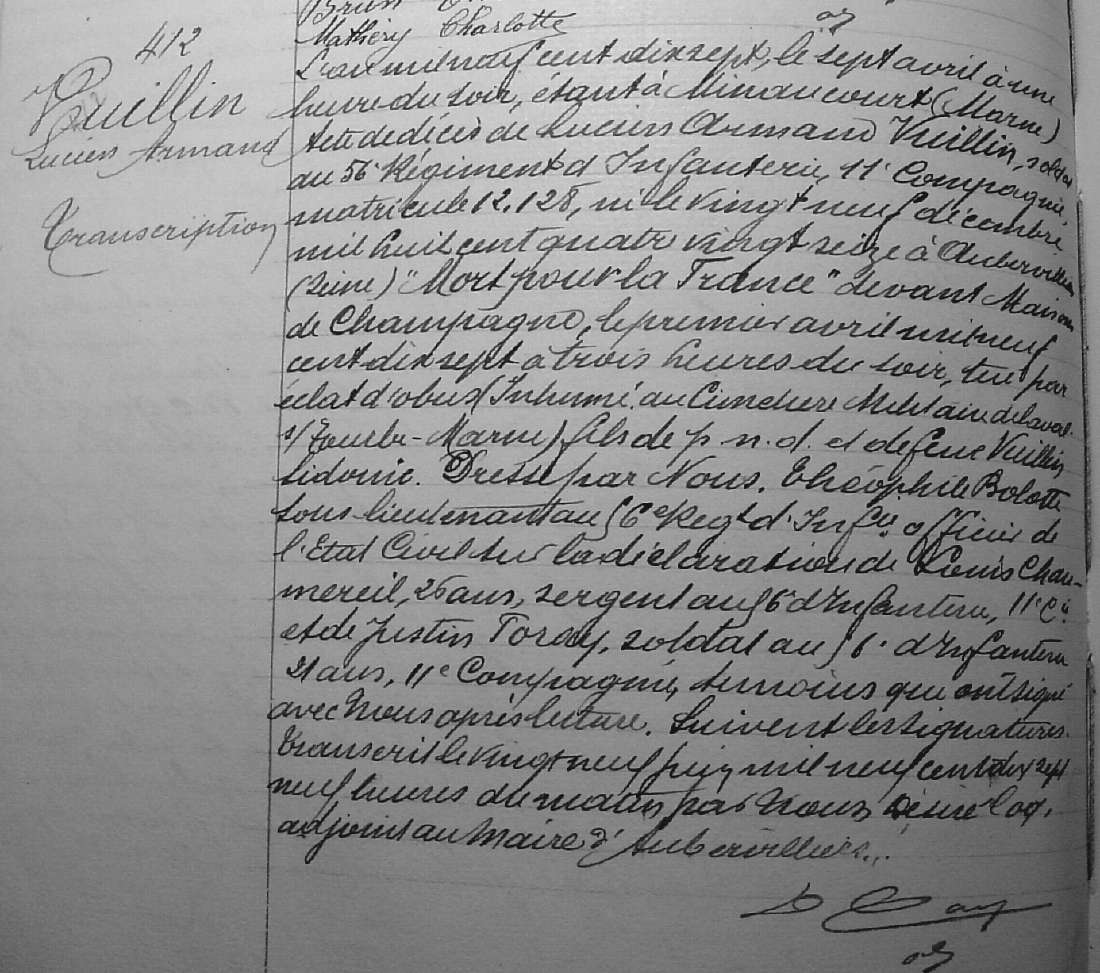 412
Vuillin
Lucien Armand
Transcription
Mathéry Charlotte
L'an mil neuf cent dix sept, le sept avril à une
heure du soir, étant à Minaucourt (Marne)
Acte de décès de Lucien Armand Vuillin, soldat
au 56e Régiment d'Infanterie, 11e Compagnie,
matricule 12.128, né le vingt neuf décembre
mil huit cent quatre vingt seize à Aubervilliers
(Seine) "Mort pour la France" devant Maisons
de Champagne, le premier avril mil neuf
cent dix sept à trois heures du soir, tué par
éclat d'obus (Inhumé au Cimetière Militaire de Laval
s/ Tourbe - Marne) fils de p. n. d. et de feue Vuillin
Sidonie. Dressé par Nous, Théophile Bolotte
sous lieutenant au 56e Regt d'Infie officier de
l'Etat Civil sur la déclaration de Louis Chau-
mereil, 26 ans, sergent au 56e d'Infanterie, 11e Cie
et de Justin Toray, soldat au 56e d'Infanterie
21 ans, 11e Compagnie, témoins qui ont signé
avec Nous après lecture. Suivent les signatures.
Transcrit le vingt neuf juin mil neuf cent dix sept
neuf heures du matin par Nous,
adjoint au Maire d'Aubervilliers...